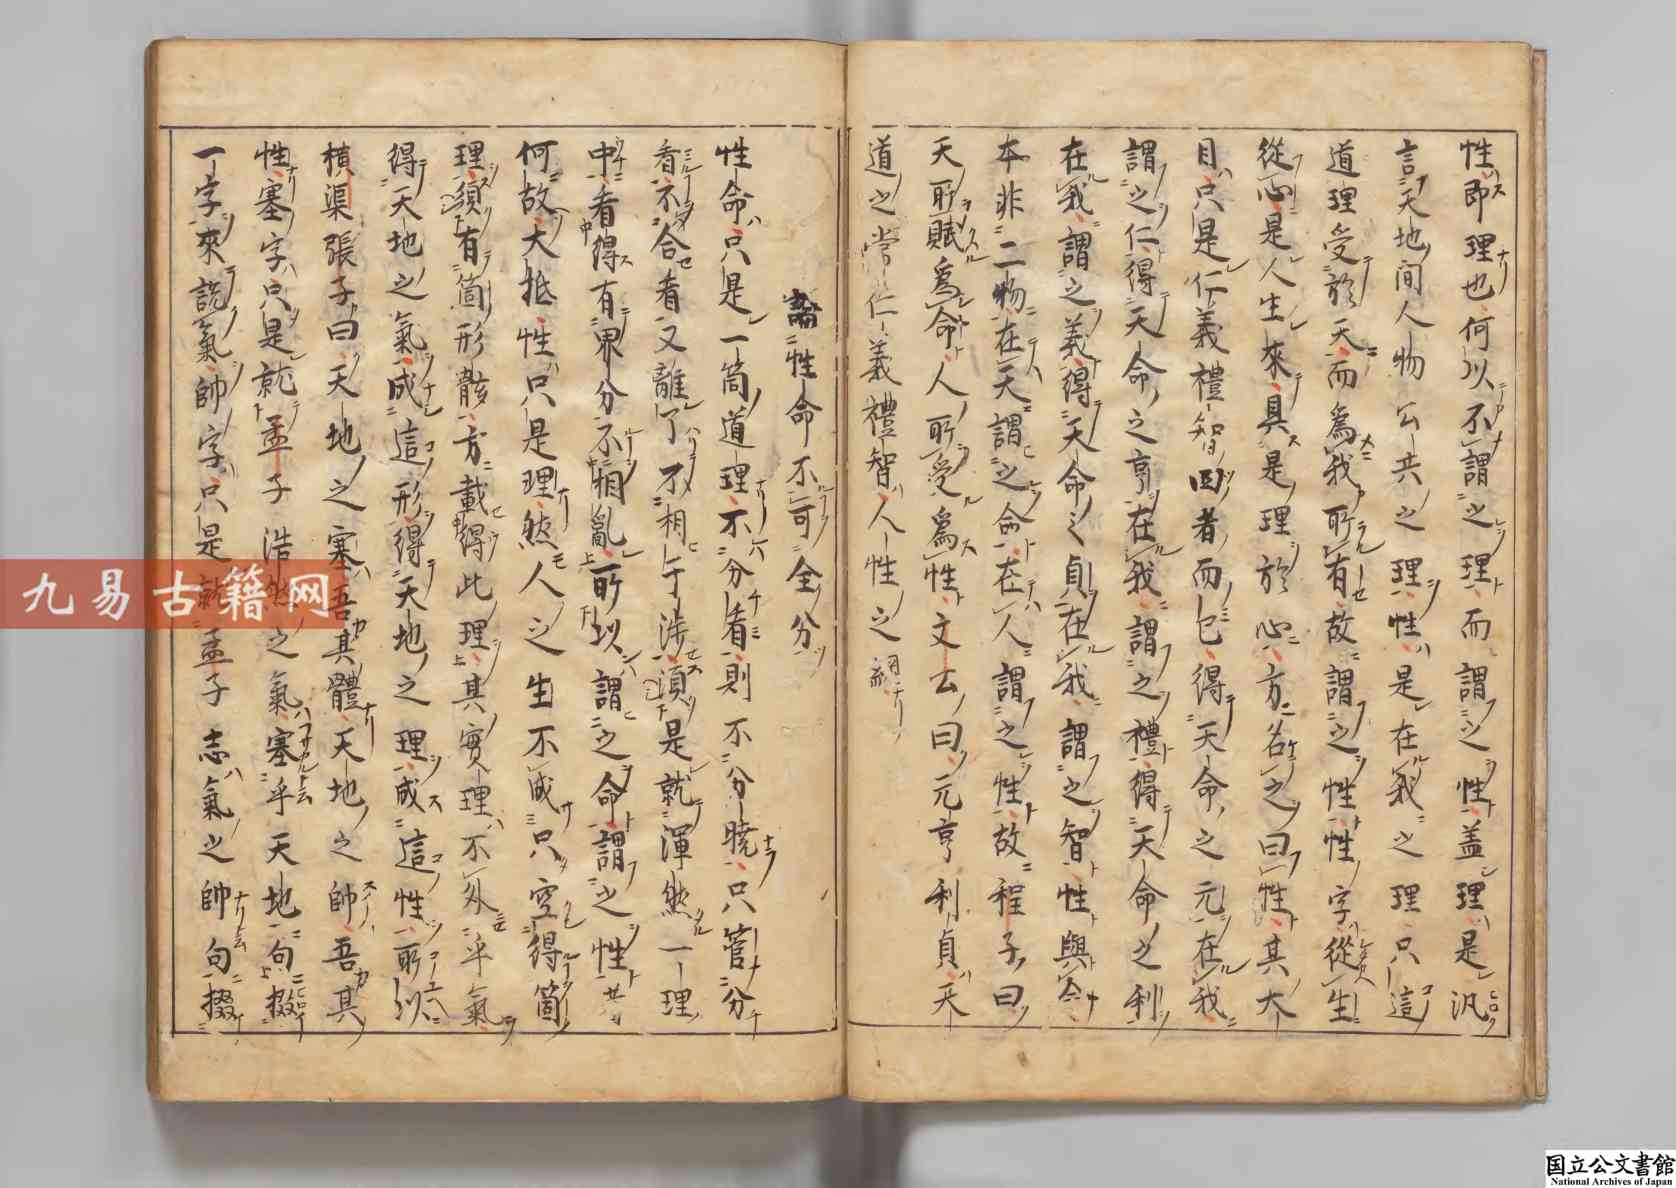 性即理也何以不謂之理而謂之性蓋理是汎
言天地間人物公共之理性是在我之理只這
道理受於天而為我所有故謂之性性字從生
從心是人生來具是理於心方名之曰性其大
目只是仁義禮智四者而已得天命之元在我
謂之仁得天命之亨在我謂之禮得天命之利
在我謂之義得天命之貞在我謂之智性與命
本非二物在天謂之命在人謂之性故程子曰
天所賦為命人所受為性文公曰元亨利貞天
道之常仁義禮智人性之綱
論性命不可全分
性命只是一箇道理不分看則不分曉只管分
看不合看又離了不相干涉須是就渾然一理
中看得有界分不相亂所以謂之命謂之性者
何故大抵性只是理然人之生不成只空得箇
理須有箇形骸方載得此理其實理不外乎氣
得天地之氣成這形得天地之理成這性所以
橫渠張子曰天地之塞吾其體天地之帥吾其
性塞字只是就孟子浩然之氣塞乎天地句掇
一字來說氣帥字只是就孟子志氣之帥句掇
九易古籍网
国立公文書館
National Archives of Japan